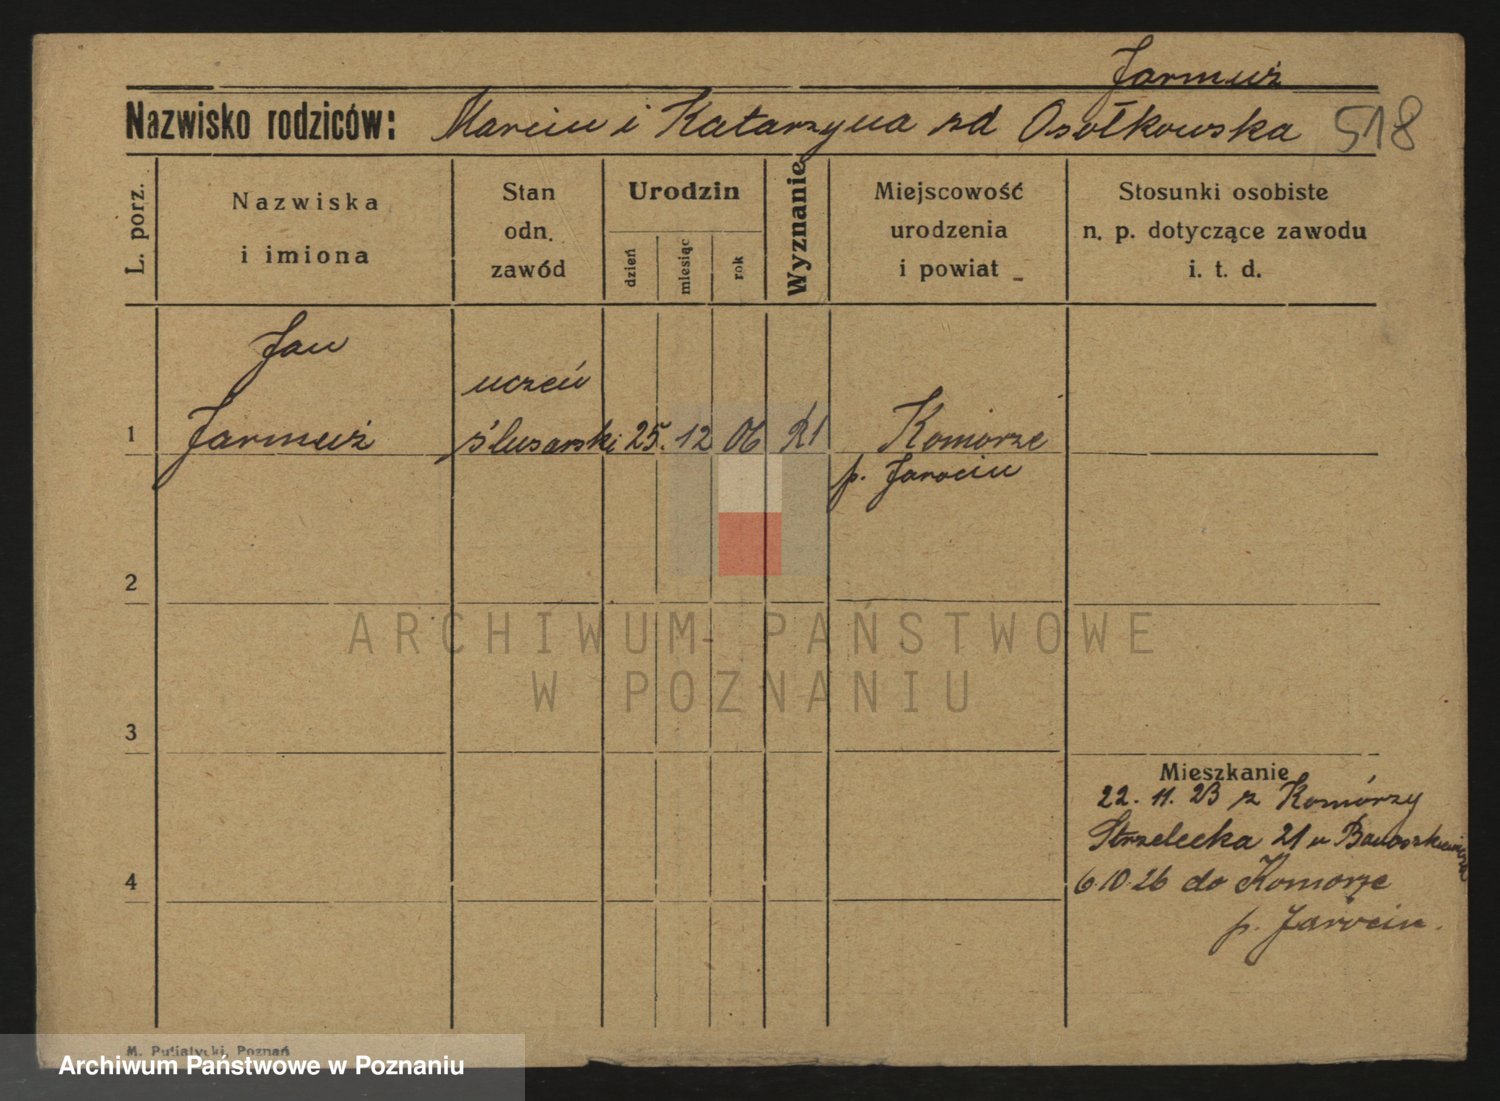 Jarmuż
Nazwisko rodziców: Marcin i Katarzyna zd Osołkowska 518
L. porz.
Nazwiska
i imiona
Stan
odn.
zawód
Urodzin
dzień
miesiąc
rok
Wyznanie
Miejscowość
urodzenia
i powiat
Stosunki osobiste
n. p. dotyczące zawodu
i. t. d.
Jan
uczeń
1 Jarmuż ślusarski 25. 12 06 Rk Komorze
p. Jarocin
2
ARCHIWUM PAŃSTWOWE
W POZNANIU
3
Mieszkanie
22. 11. 23 z Komórzy
Strzelecka 21 u
4 6.10.26 do Komorze
p. Jarocin.
M. Putiatycki, Poznań
Archiwum Państwowe w Poznaniu